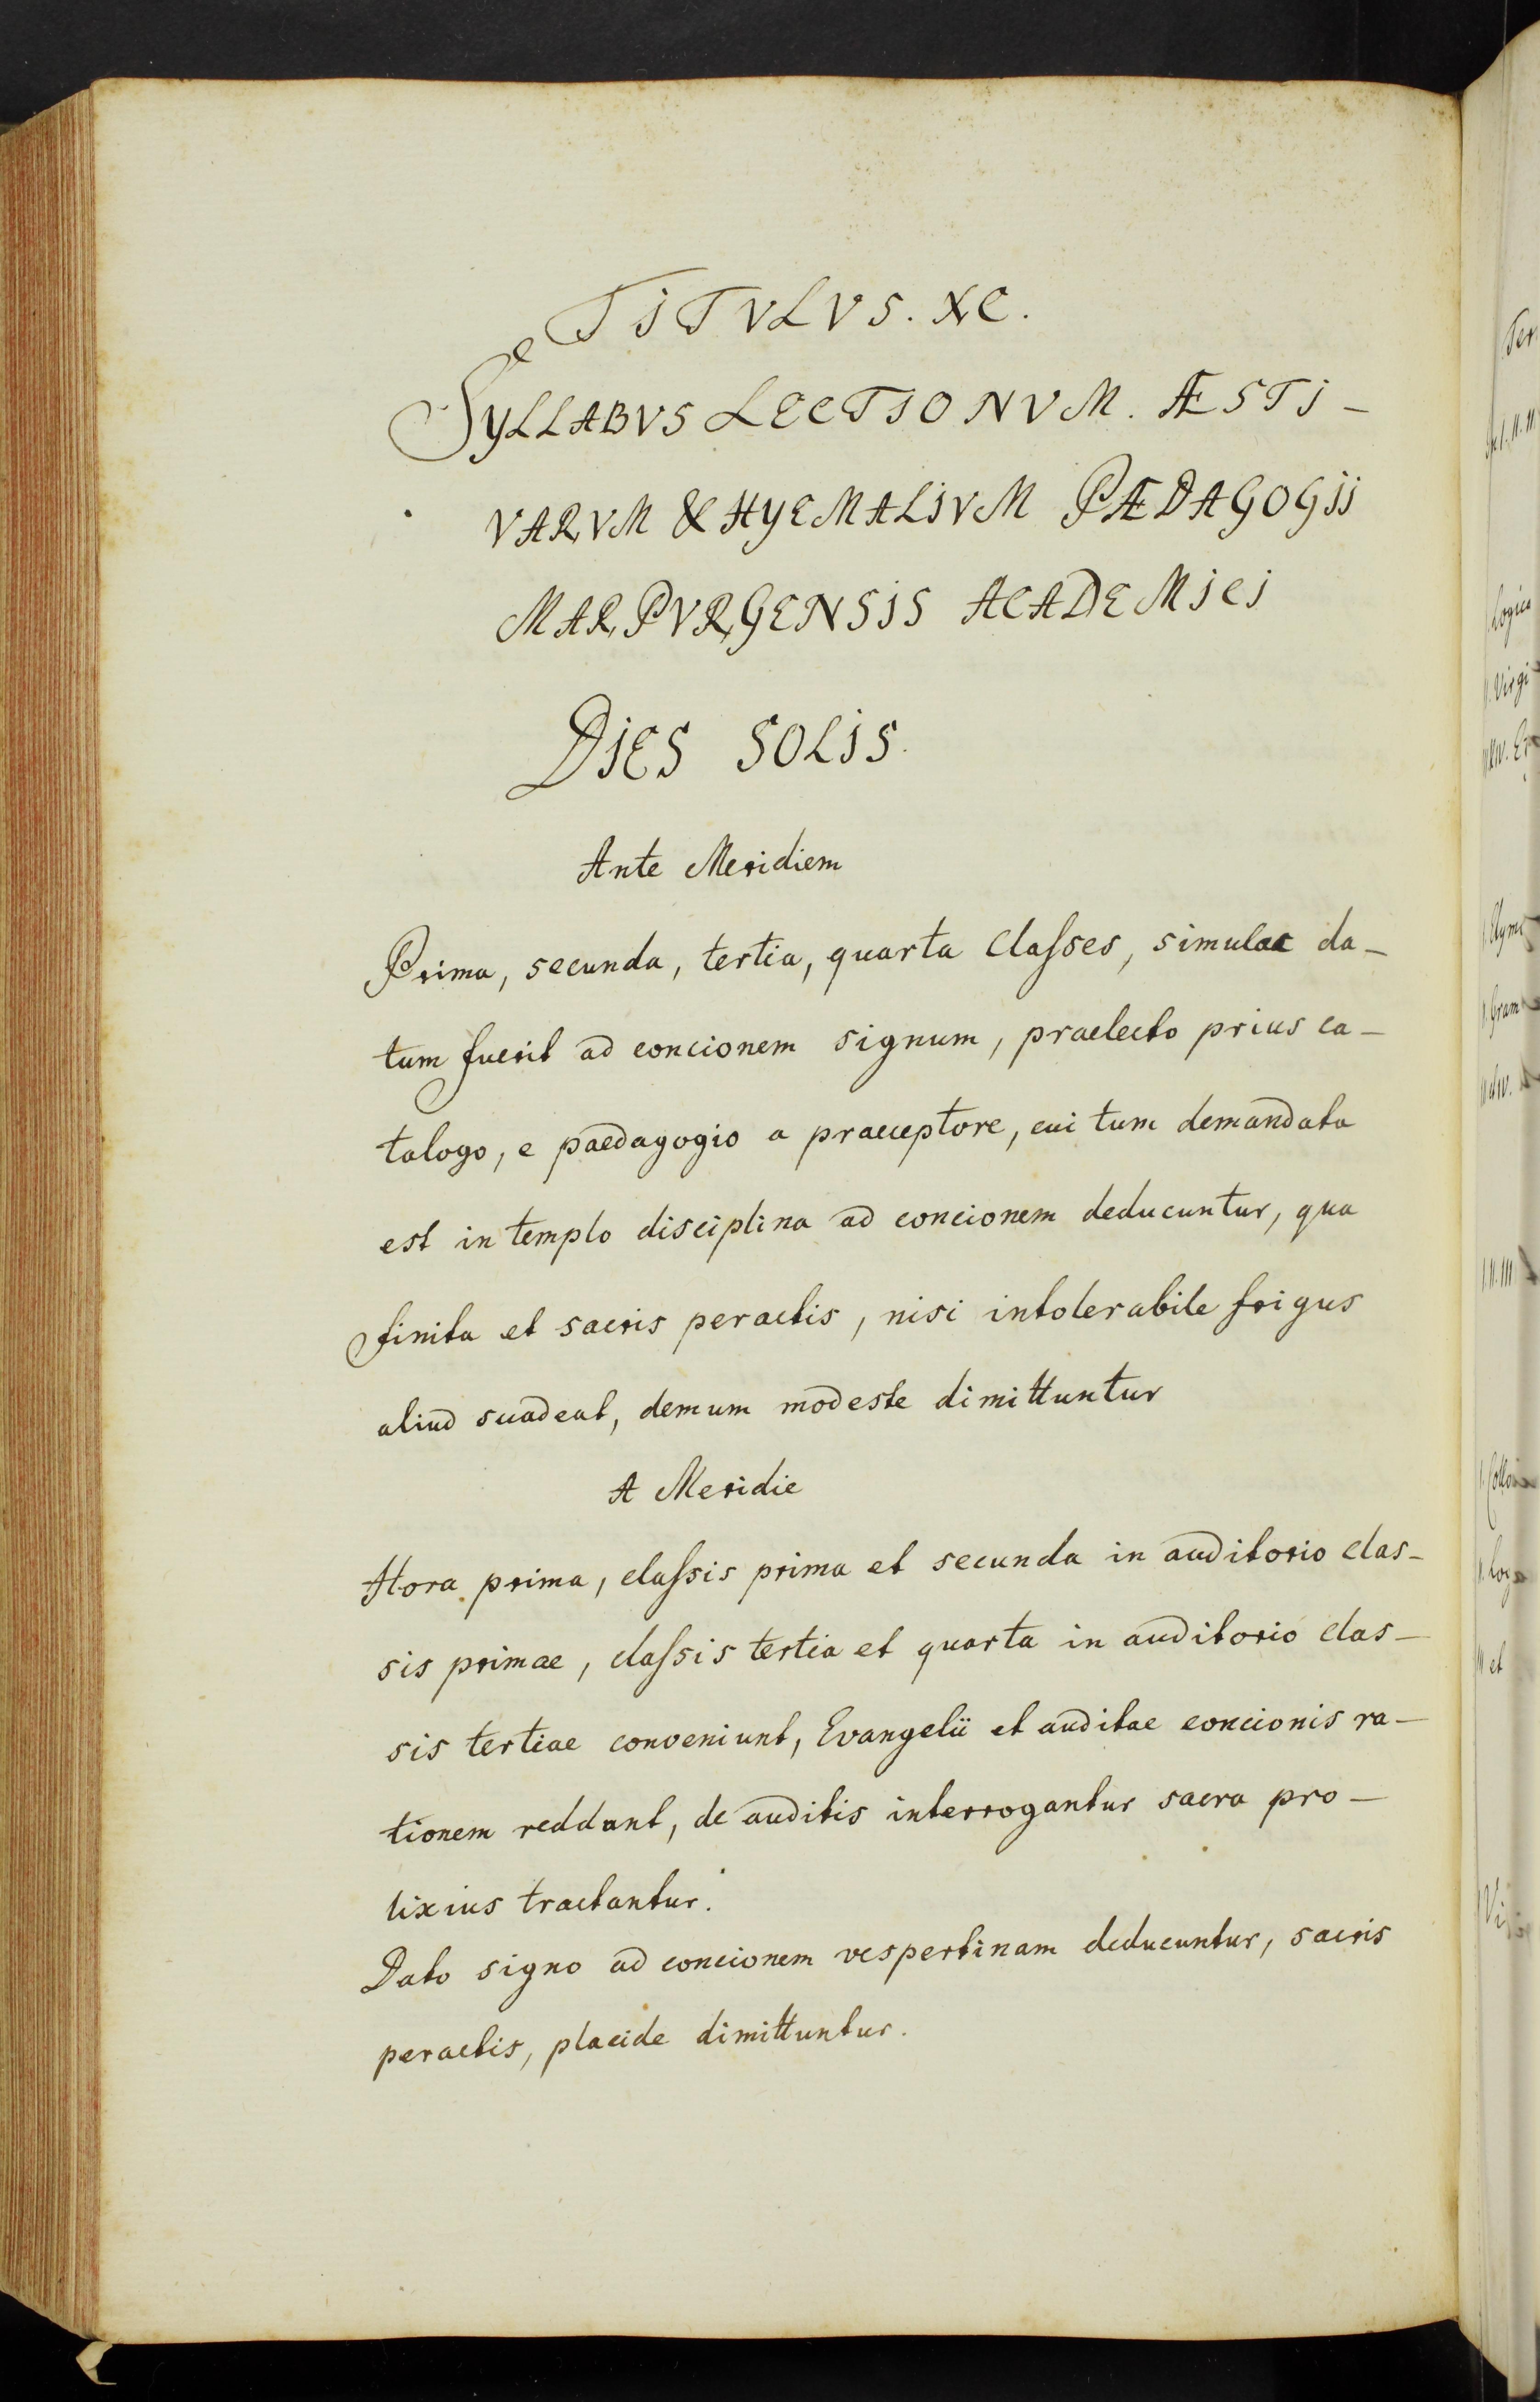 TITVLVS. XC.
SYLLABVS LECTIONVM. ÆSTI-
VARVM & HYEMALIVM PÆDAGOGII
MARPVRGENSIS ACADEMICI
DIES SOLIS.
Ante Meridiem
Prima, secunda, tertia, quarta Claſses, simulac da-
tum fuerit ad concionem signum, praelecto prius ca-
talogo, e paedagogio a praeceptore, cui tum demandata
est in templo disciplina ad concionem deducuntur, qua
finita et sacris peractis, nisi intolerabile frigus
aliud suadeat, demum modeste dimittuntur
A Meridie
Hora prima, claſsis prima et secunda in auditorio clas-
sis primae, claſsis tertia et quarta in auditorio clas-
sis tertiae conveniunt, Evangelii et auditae concionis ra-
tionem reddunt, de auditis interrogantur sacra pro-
lixius tractantur.
Dato signo ad concionem vespertinam deducuntur, sacris
peractis, placide dimittuntur.
Ter
Logica
II. Virgi
I. Etymo
II. Gram
I. II. III
et